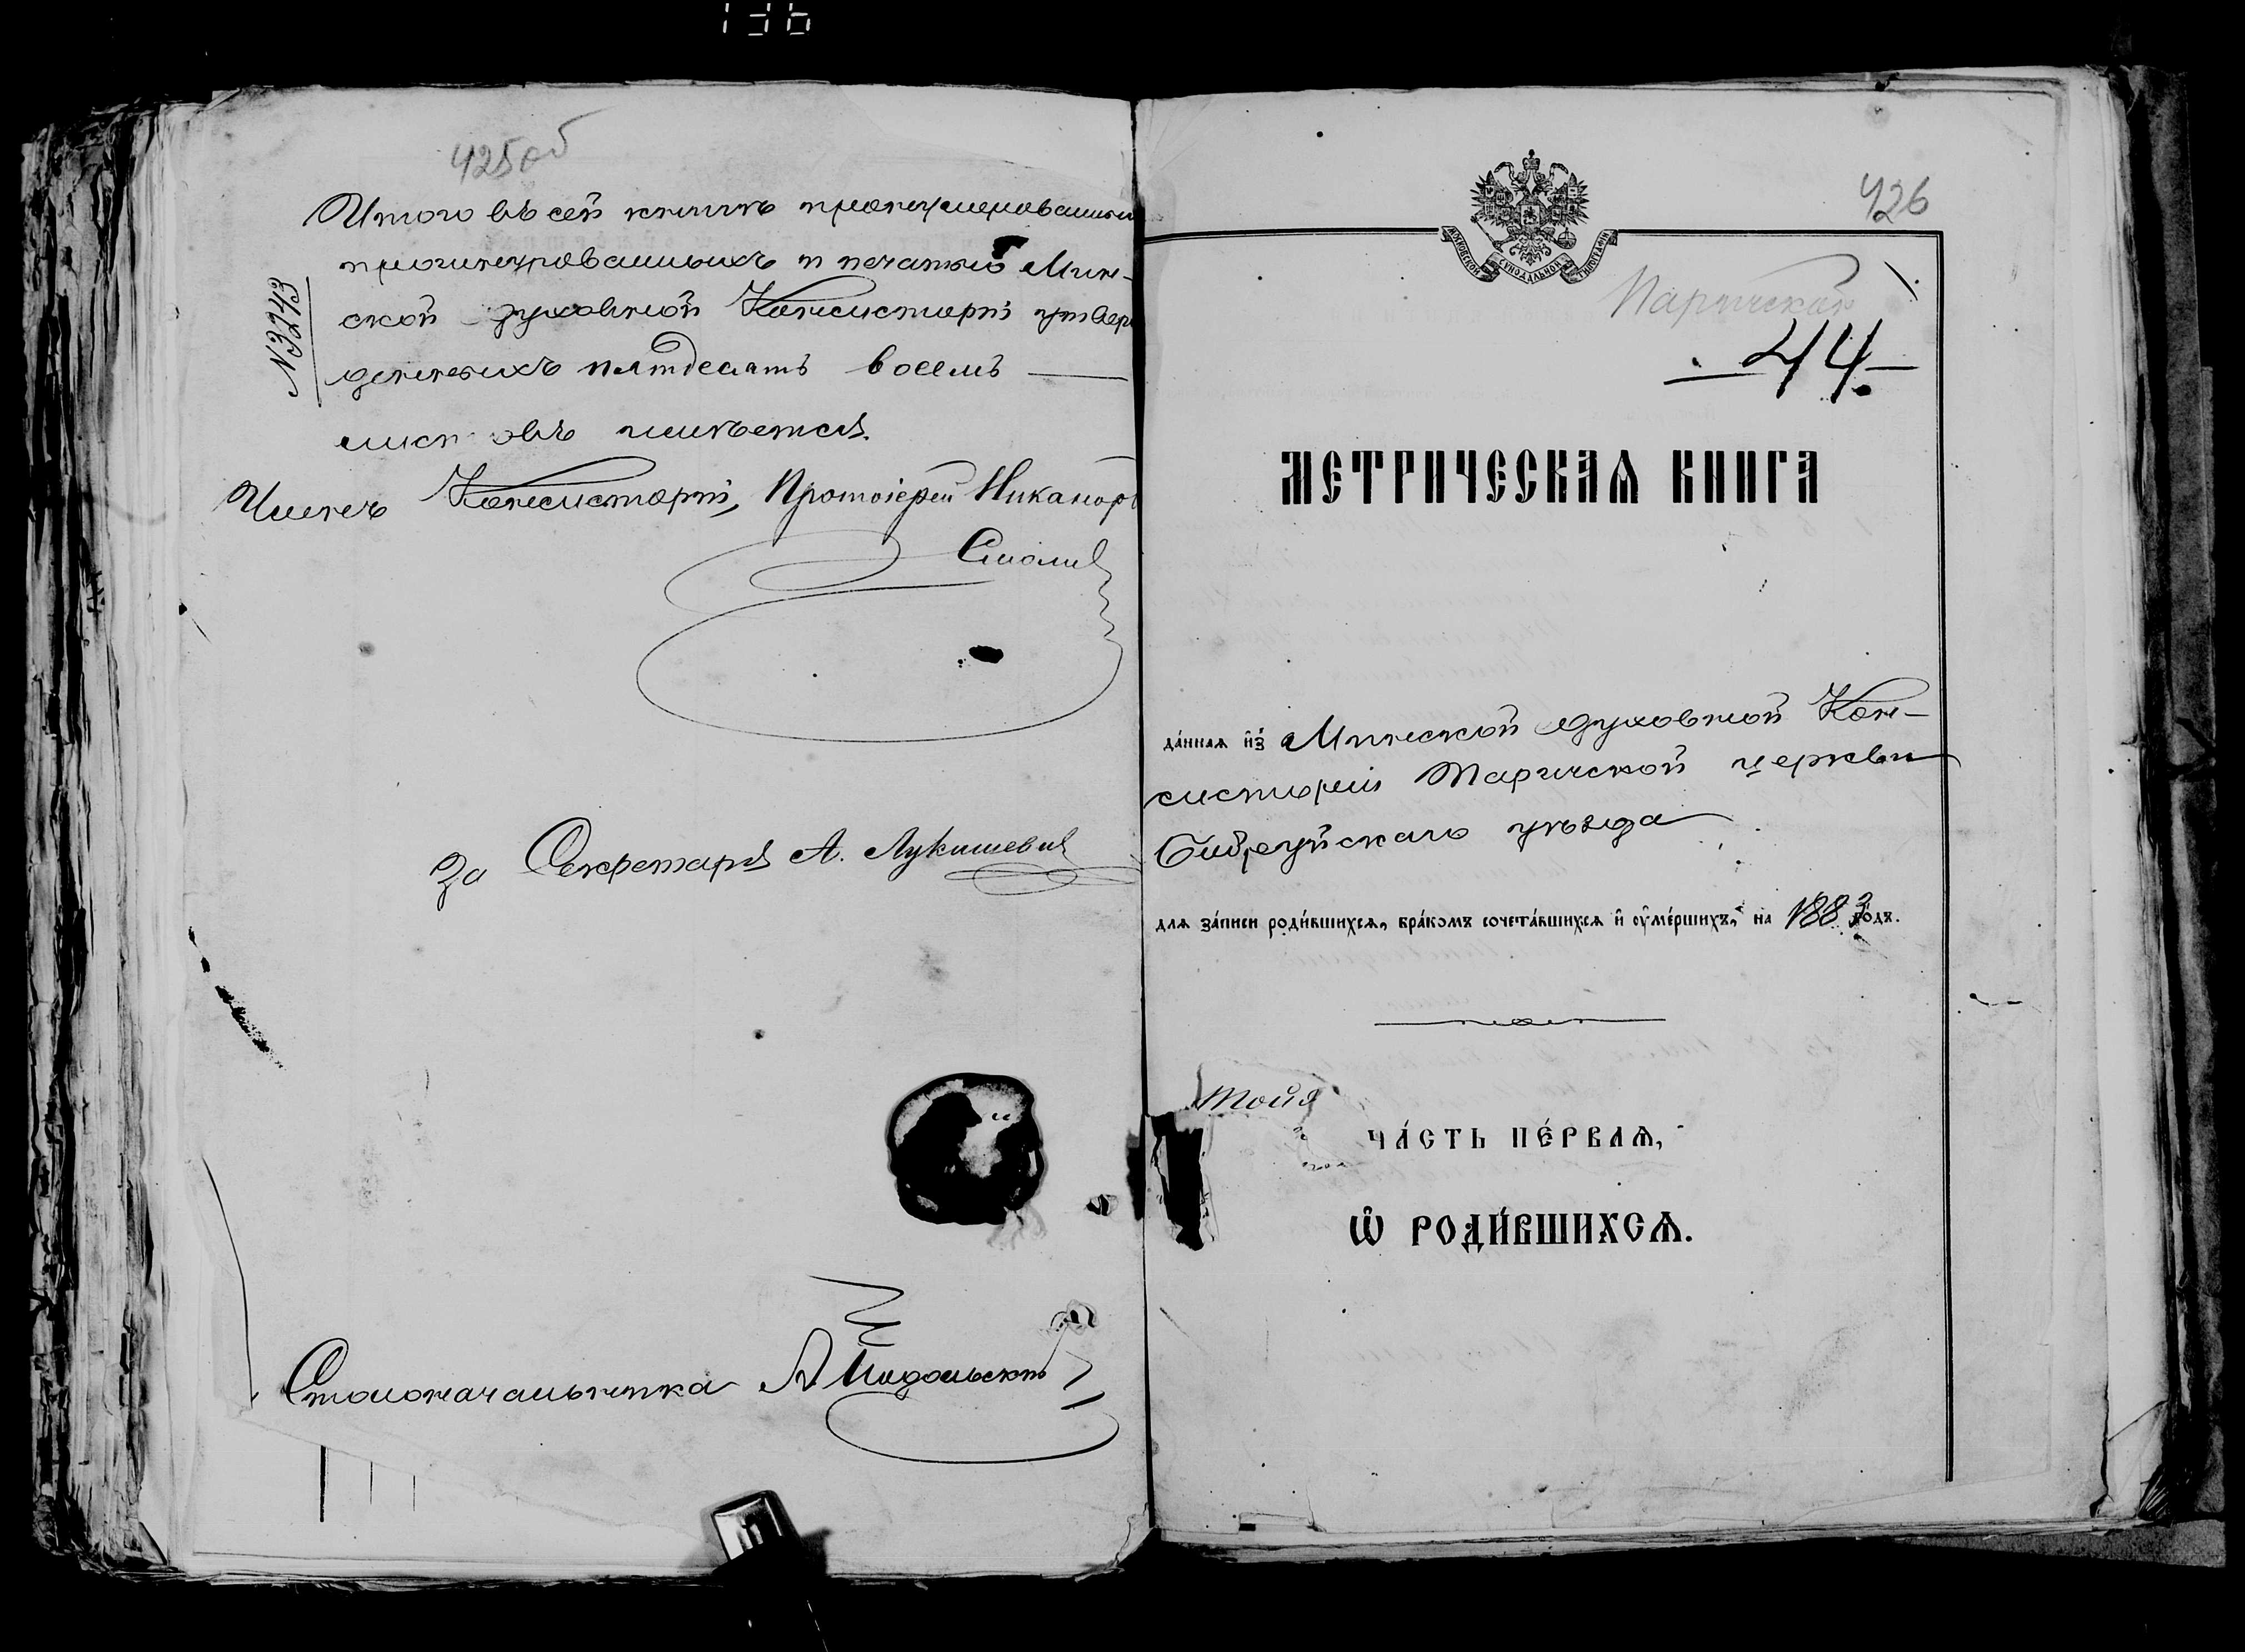 425об
Итого въ сей книгѣ пронумерованны
прошнурованныхъ и печатью Мин-
ской духовной Консисторіи утвер
жденныхъ пятдесятъ восемь
листовъ имѣется.
№3243
Членъ Консисторіи, Протоіерей Никаноръ
Смолич
За Секретаря А. Лукашевич
Столоначальника А Подольскій
426
МОСКОВСКОЙ СѴНОДАЛЬНОЙ ТИПОГРАФІИ
Паричская
44
МЕТРИЧЕСКАѦ КНИГА
да́ннаѧ и҆з̾ Минской духовной Кон-
систоріи Паричской церкви
Бобруйскаго уѣзда
длѧ за́писи роди́вшихсѧ, бра́комъ сочета́вшихсѧ и҆ ᲂу҆ме́ршихъ, на 1883 го́дъ.
ЧА́СТЬ ПЕ́РВАѦ,
Ѽ РОДИ́ВШИХСѦ.